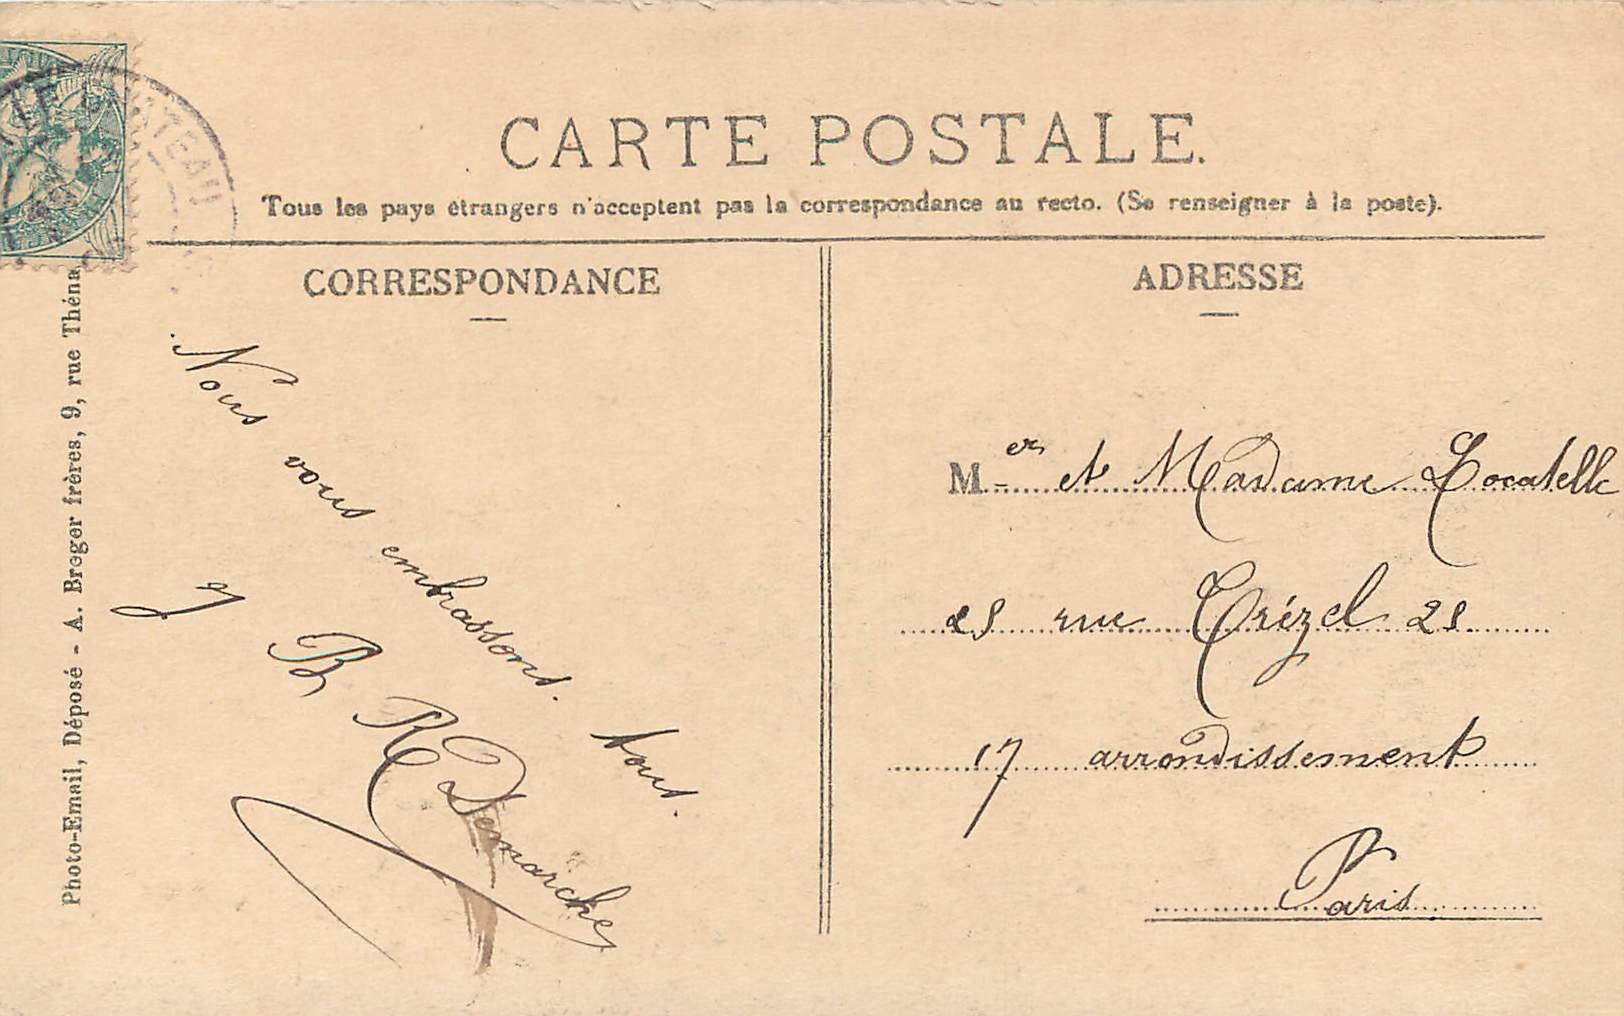 LE CHATEAU
CARTE POSTALE.
Tous les pays étrangers n'acceptent pas la correspondance au recto. (Se renseigner à la poste).
CORRESPONDANCE
Nous vous embrassons. tous.
B R Demarche
ADRESSE
Mer et Madame Locatelle
25 rue Trézel 25
17 arrondissement
Paris
Photo-Email, Déposé - A. Breger frères, 9, rue Théna